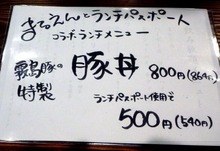 まるえんとランチパスポート
コラボランチメニュー
霧島豚の
特製
豚丼 800円(864円)
ランチパスポート使用で
500円(540円)